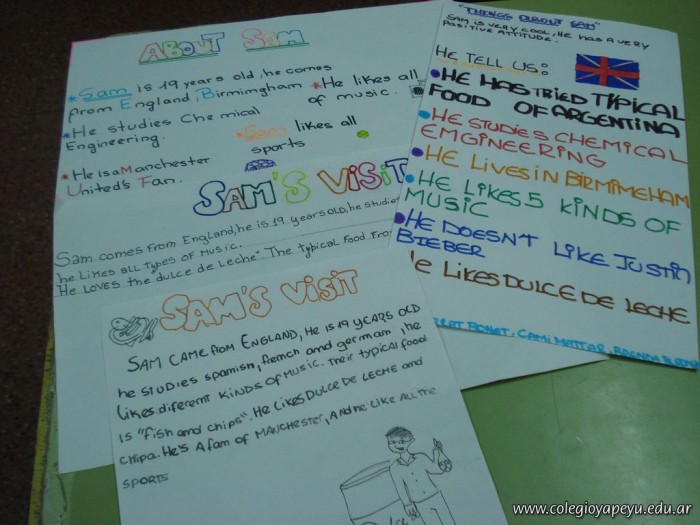 ABOUT SAM
* Sam is 19 years old, he comes
from England, Birmingham
*He studies Chemical
Engineering.
*He is a Manchester
United's Fan.
*He likes all
of music.
*Sam likes all
sports
SAM'S VISIT
Sam comes from England, he is 19 years old, he studies
he likes all types of music.
He LOVES the dulce de leche. The typical Food From
SAM'S VISIT
SAM CAME from ENGLAND, HE IS 19 YEARS OLD
he STUDIES spanish, french and german, he
likes diferent KINDS OF MUSIC. Their typical food
IS "fish and chips". He likes DULCE DE LECHE and
chipa. He's A fam of MANCHESTER, And he like ALL THE
SPORTS
Dulce
"THINGS ABOUT SAM"
SAM IS VERY COOL, HE HAS A VERY
POSITIVE ATTITUDE.
HE TELL US:
• HE HAS TRIED TYPICAL
FOOD OF ARGENTINA
• HE STUDIES CHEMICAL
EMGINEERING
• HE LIVES IN BIRMIMEHAM
• HE LIKES 5 KINDS OF
MUSIC
• HE DOESN'T LIKE JUSTIN
BIEBER
HE LIKES DULCE DE LECHE
BONET, CAMI MATTAR, BRENDA
www.colegioyapeyu.edu.ar